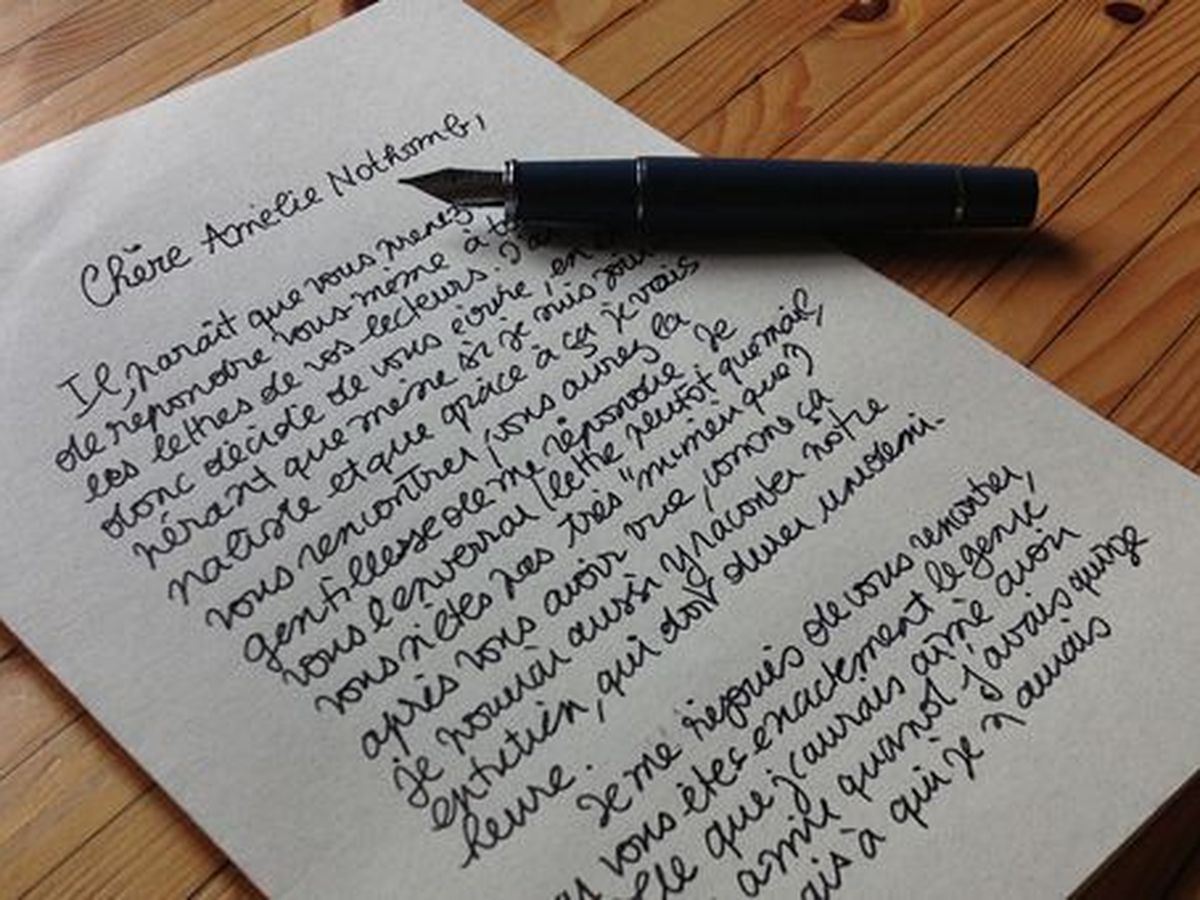 Chère Amélie Nothomb,
Il paraît que vous prenez
de répondre vous-même à
les lettres de vos lecteurs. J'ai
donc décidé de vous écrire, en
pérant que même si je suis jour
naliste et que grâce à ça je vais
vous rencontrer, vous aurez la
gentillesse de me répondre. Je
vous l'enverrai (lettre plutôt que mail,
vous n'êtes pas très "numérique")
après vous avoir vue, comme ça
je pourrai aussi y raconter notre
entretien, qui doit durer une demi-
heure.
Je me réjouis de vous rencontrer,
vous êtes exactement le genre
que j'aurais aimé avoir
amie quand j'avais quinze
ais à qui je n'aurais